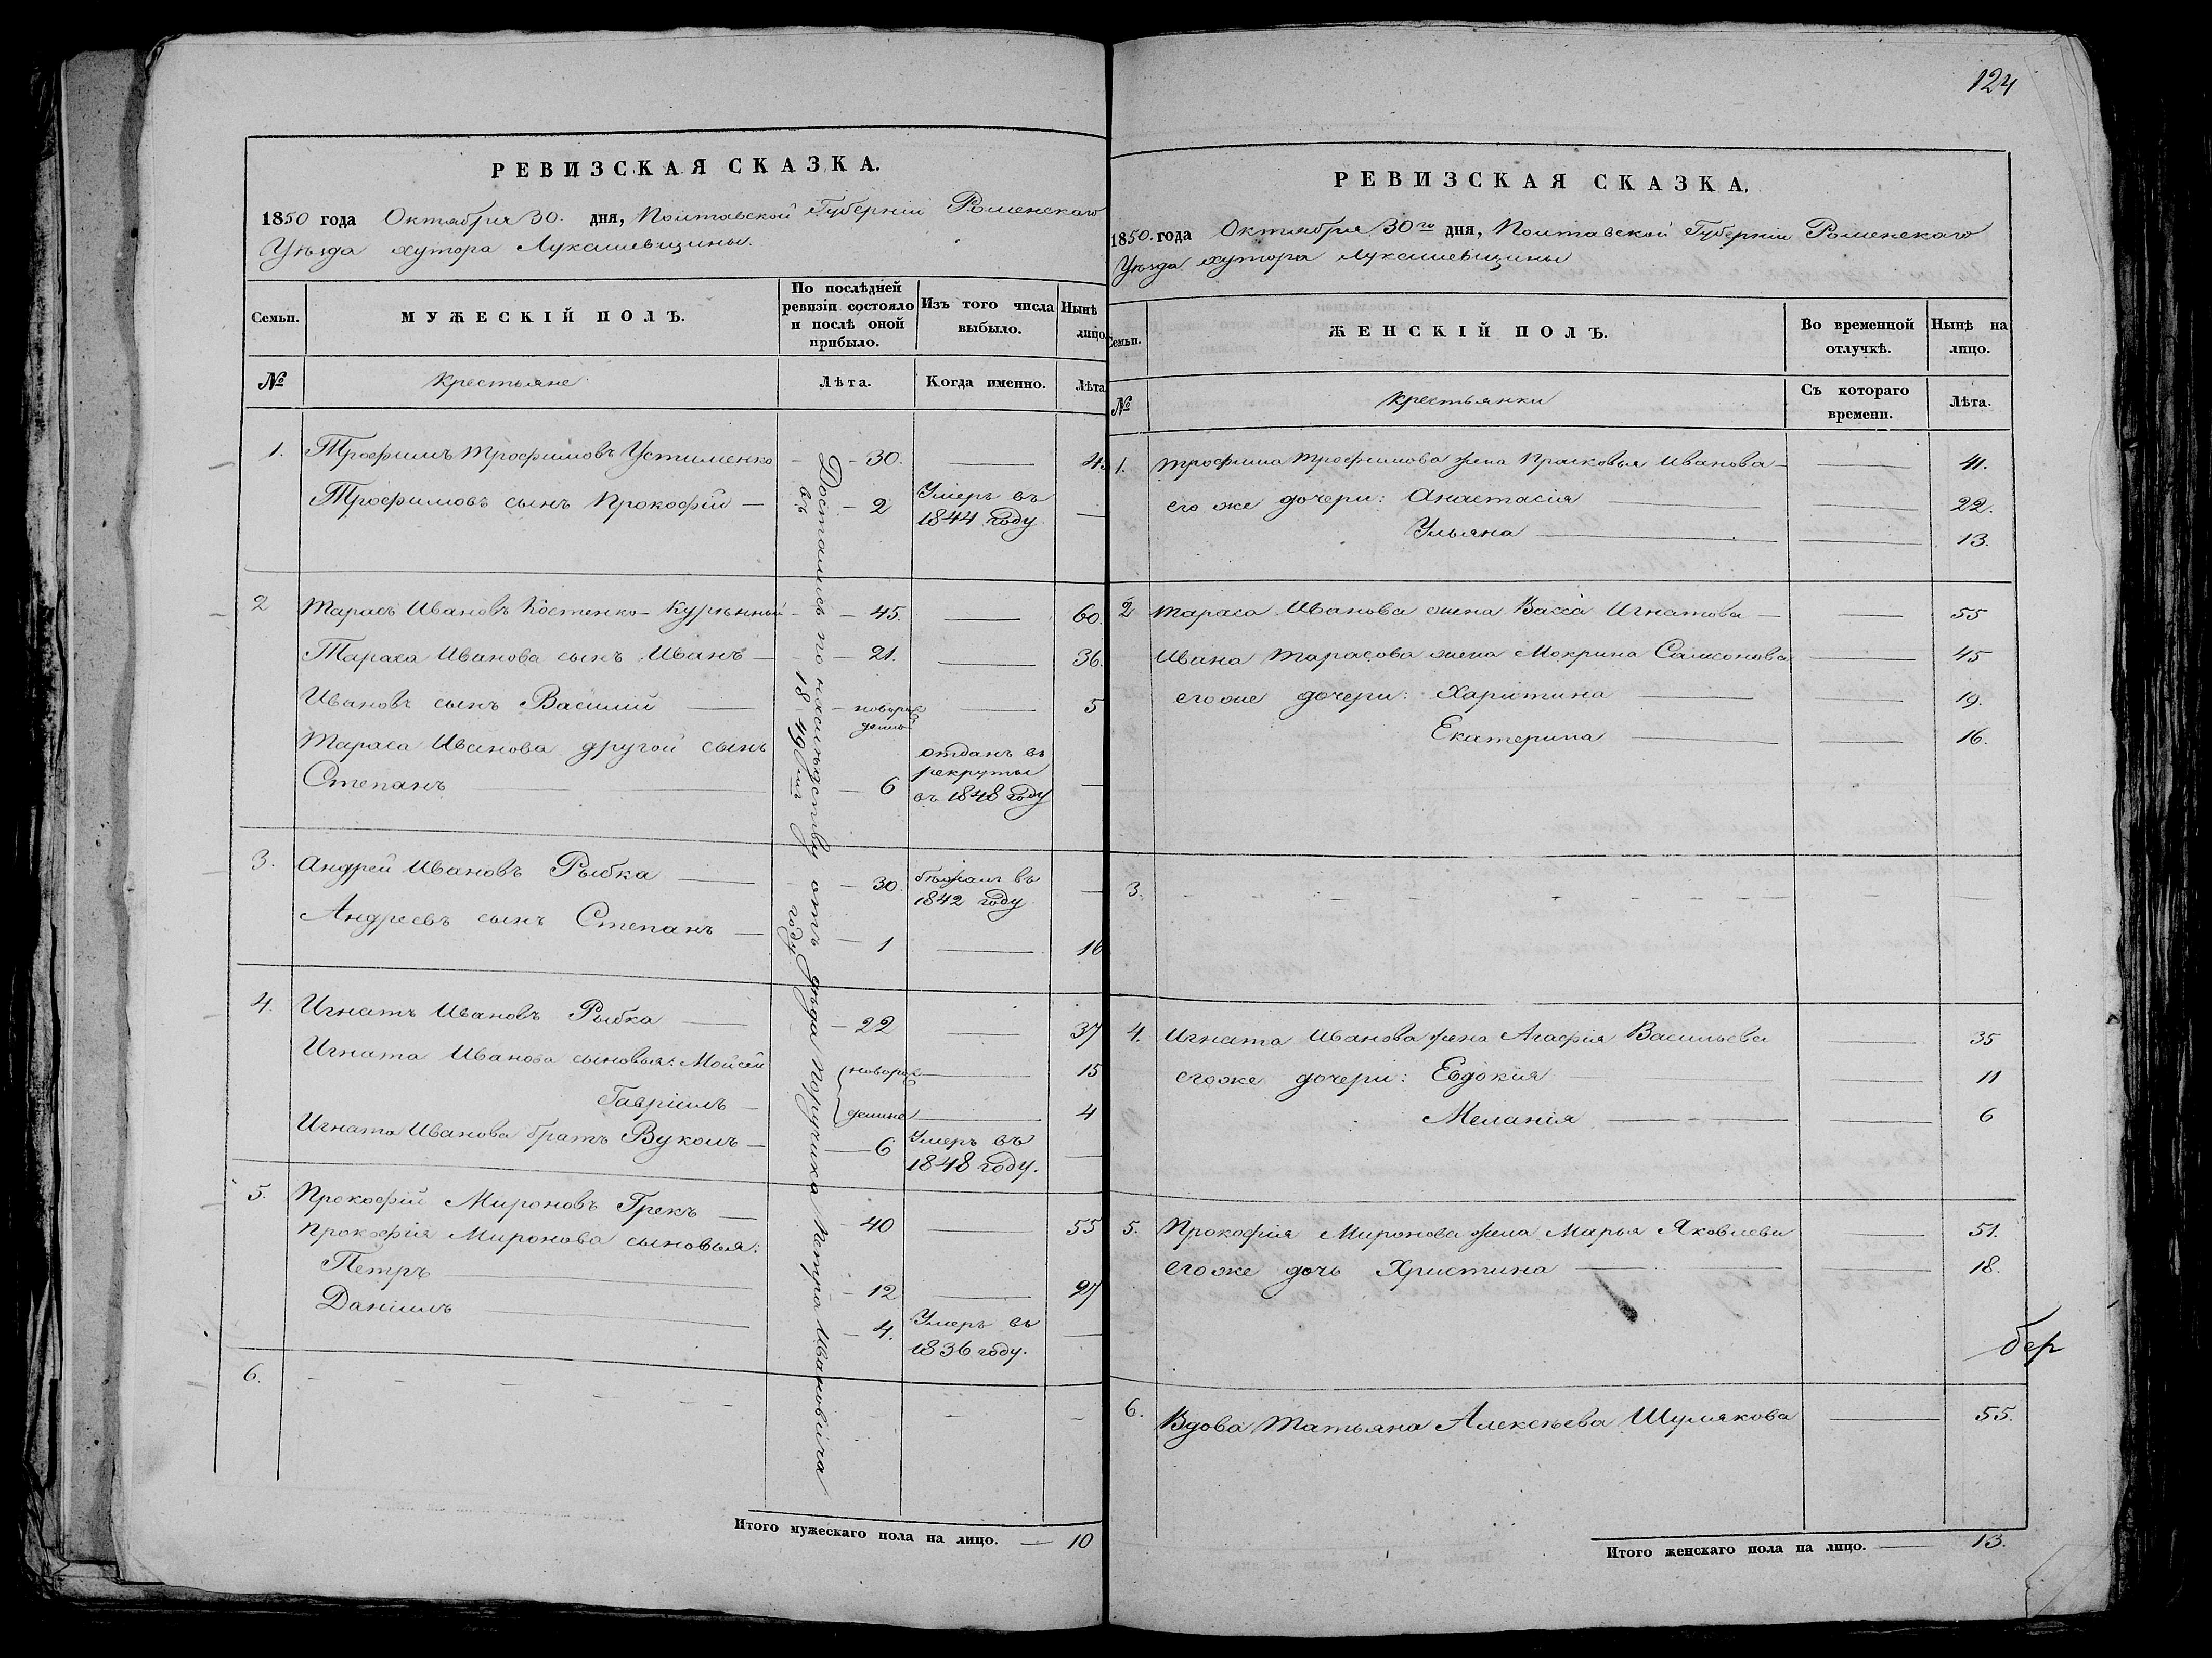 РЕВИЗСКАЯ СКАЗКА.
1850 года Октября 30. дня, Полтавской Губерніи Роменскаго
Уѣзда хутора Лукашевщины.
Семьи.
МУЖЕСКІЙ ПОЛЪ.
По послѣдней
ревизіи состояло
и послѣ оной
прибыло.
Изъ того числа
выбыло.
Нынѣ
лицо.
№
Крестьяне
Лѣта.
Когда именно.
Лѣта
Достались по наслѣдству отъ дѣда Поручика Петра Ивановича
въ 1849мъ году
1. Трофимъ Трофимовъ Устименко - 30. — 4
Трофимовъ сынъ Прокофій — 2 Умеръ въ
1844 году. —
2 Тарасъ Ивановъ Костенко-Курѣнный - 45. — 60.
Тараса Иванова сынъ Иванъ — 21. — 36.
Ивановъ сынъ Василій — новорож
денъ — 5
Тараса Иванова другой сынъ
Степанъ — 6 отданъ въ
рекруты
въ 1848 году —
3. Андрей Ивановъ Рыбка — 30. бѣжалъ въ
1842 году —
Андреевъ сынъ Степанъ — 1 — 16
4. Игнатъ Ивановъ Рыбка — 22 — 37
Игната Иванова сыновья: Мойсей новорож — 15
Гавріилъ — денные — 4
Игната Иванова братъ Вуколъ — 6 Умеръ въ
1848 году. —
5. Прокофій Мироновъ Грекъ — 40 — 55
Прокофія Миронова сыновья:
Петръ — 12 — 27
Даніилъ — 4. Умеръ въ
1836 году. —
6. - - - - - -
Итого мужескаго пола на лицо. — 10
124
РЕВИЗСКАЯ СКАЗКА.
1850. года Октября 30го дня, Полтавской Губерніи Роменскаго
Уѣзда хутора Лукашевщины
Семьи.
ЖЕНСКІЙ ПОЛЪ.
Во временной
отлучкѣ.
Нынѣ на
лицо.
№
Крестьянки
Съ котораго
времени.
Лѣта.
1. Трофима Трофимова жена Прасковья Иванова — 41.
его же дочери: Анастасія — 22.
Ульяна — 13.
2 Тараса Иванова жена Васса Игнатова — 55
Ивана Тарасова жена Мокрина Самсонова — 45
его же дочери: Харитина — 19.
Екатерина — 16.
3. - - - - - -
4. Игната Иванова жена Агафія Васильева — 35
его же дочери: Евдокія — 11
Меланія — 6
5. Прокофія Миронова жена Марья Яковлева — 51.
его же дочь Христина — 18.
бер
6. Вдова Татьяна Алексѣева Шулякова — 55.
Итого женскаго пола на лицо. — 13.